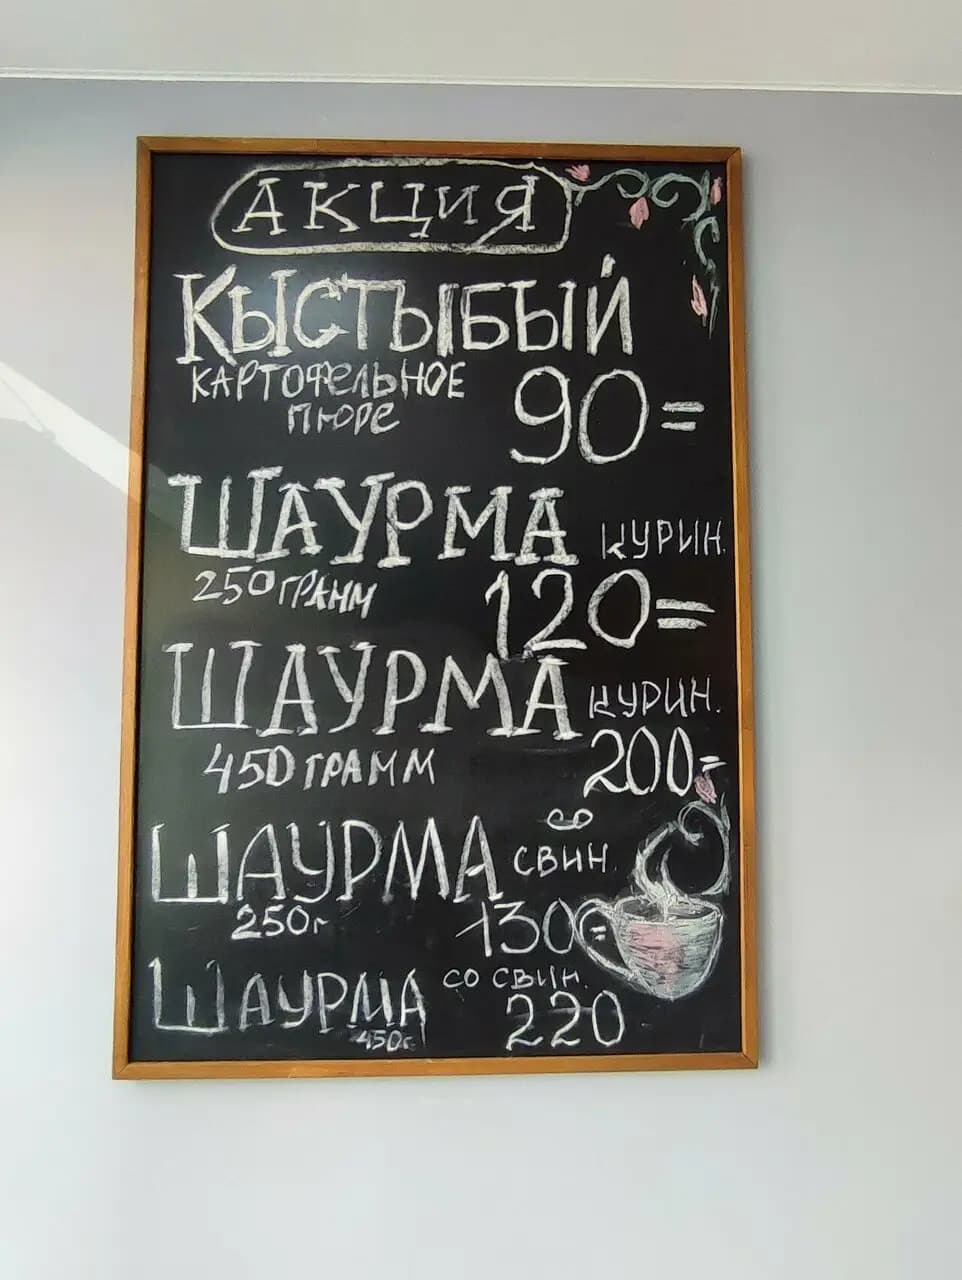 АКЦИЯ
КЫСТЫБЫЙ
КАРТОФЕЛЬНОЕ
ПЮРЕ 90=
ШАУРМА КУРИН.
250 ГРАММ 120=
ШАУРМА КУРИН.
450 ГРАММ 200=
ШАУРМА СО СВИН.
250г 130=
ШАУРМА СО СВИН.
450г 220